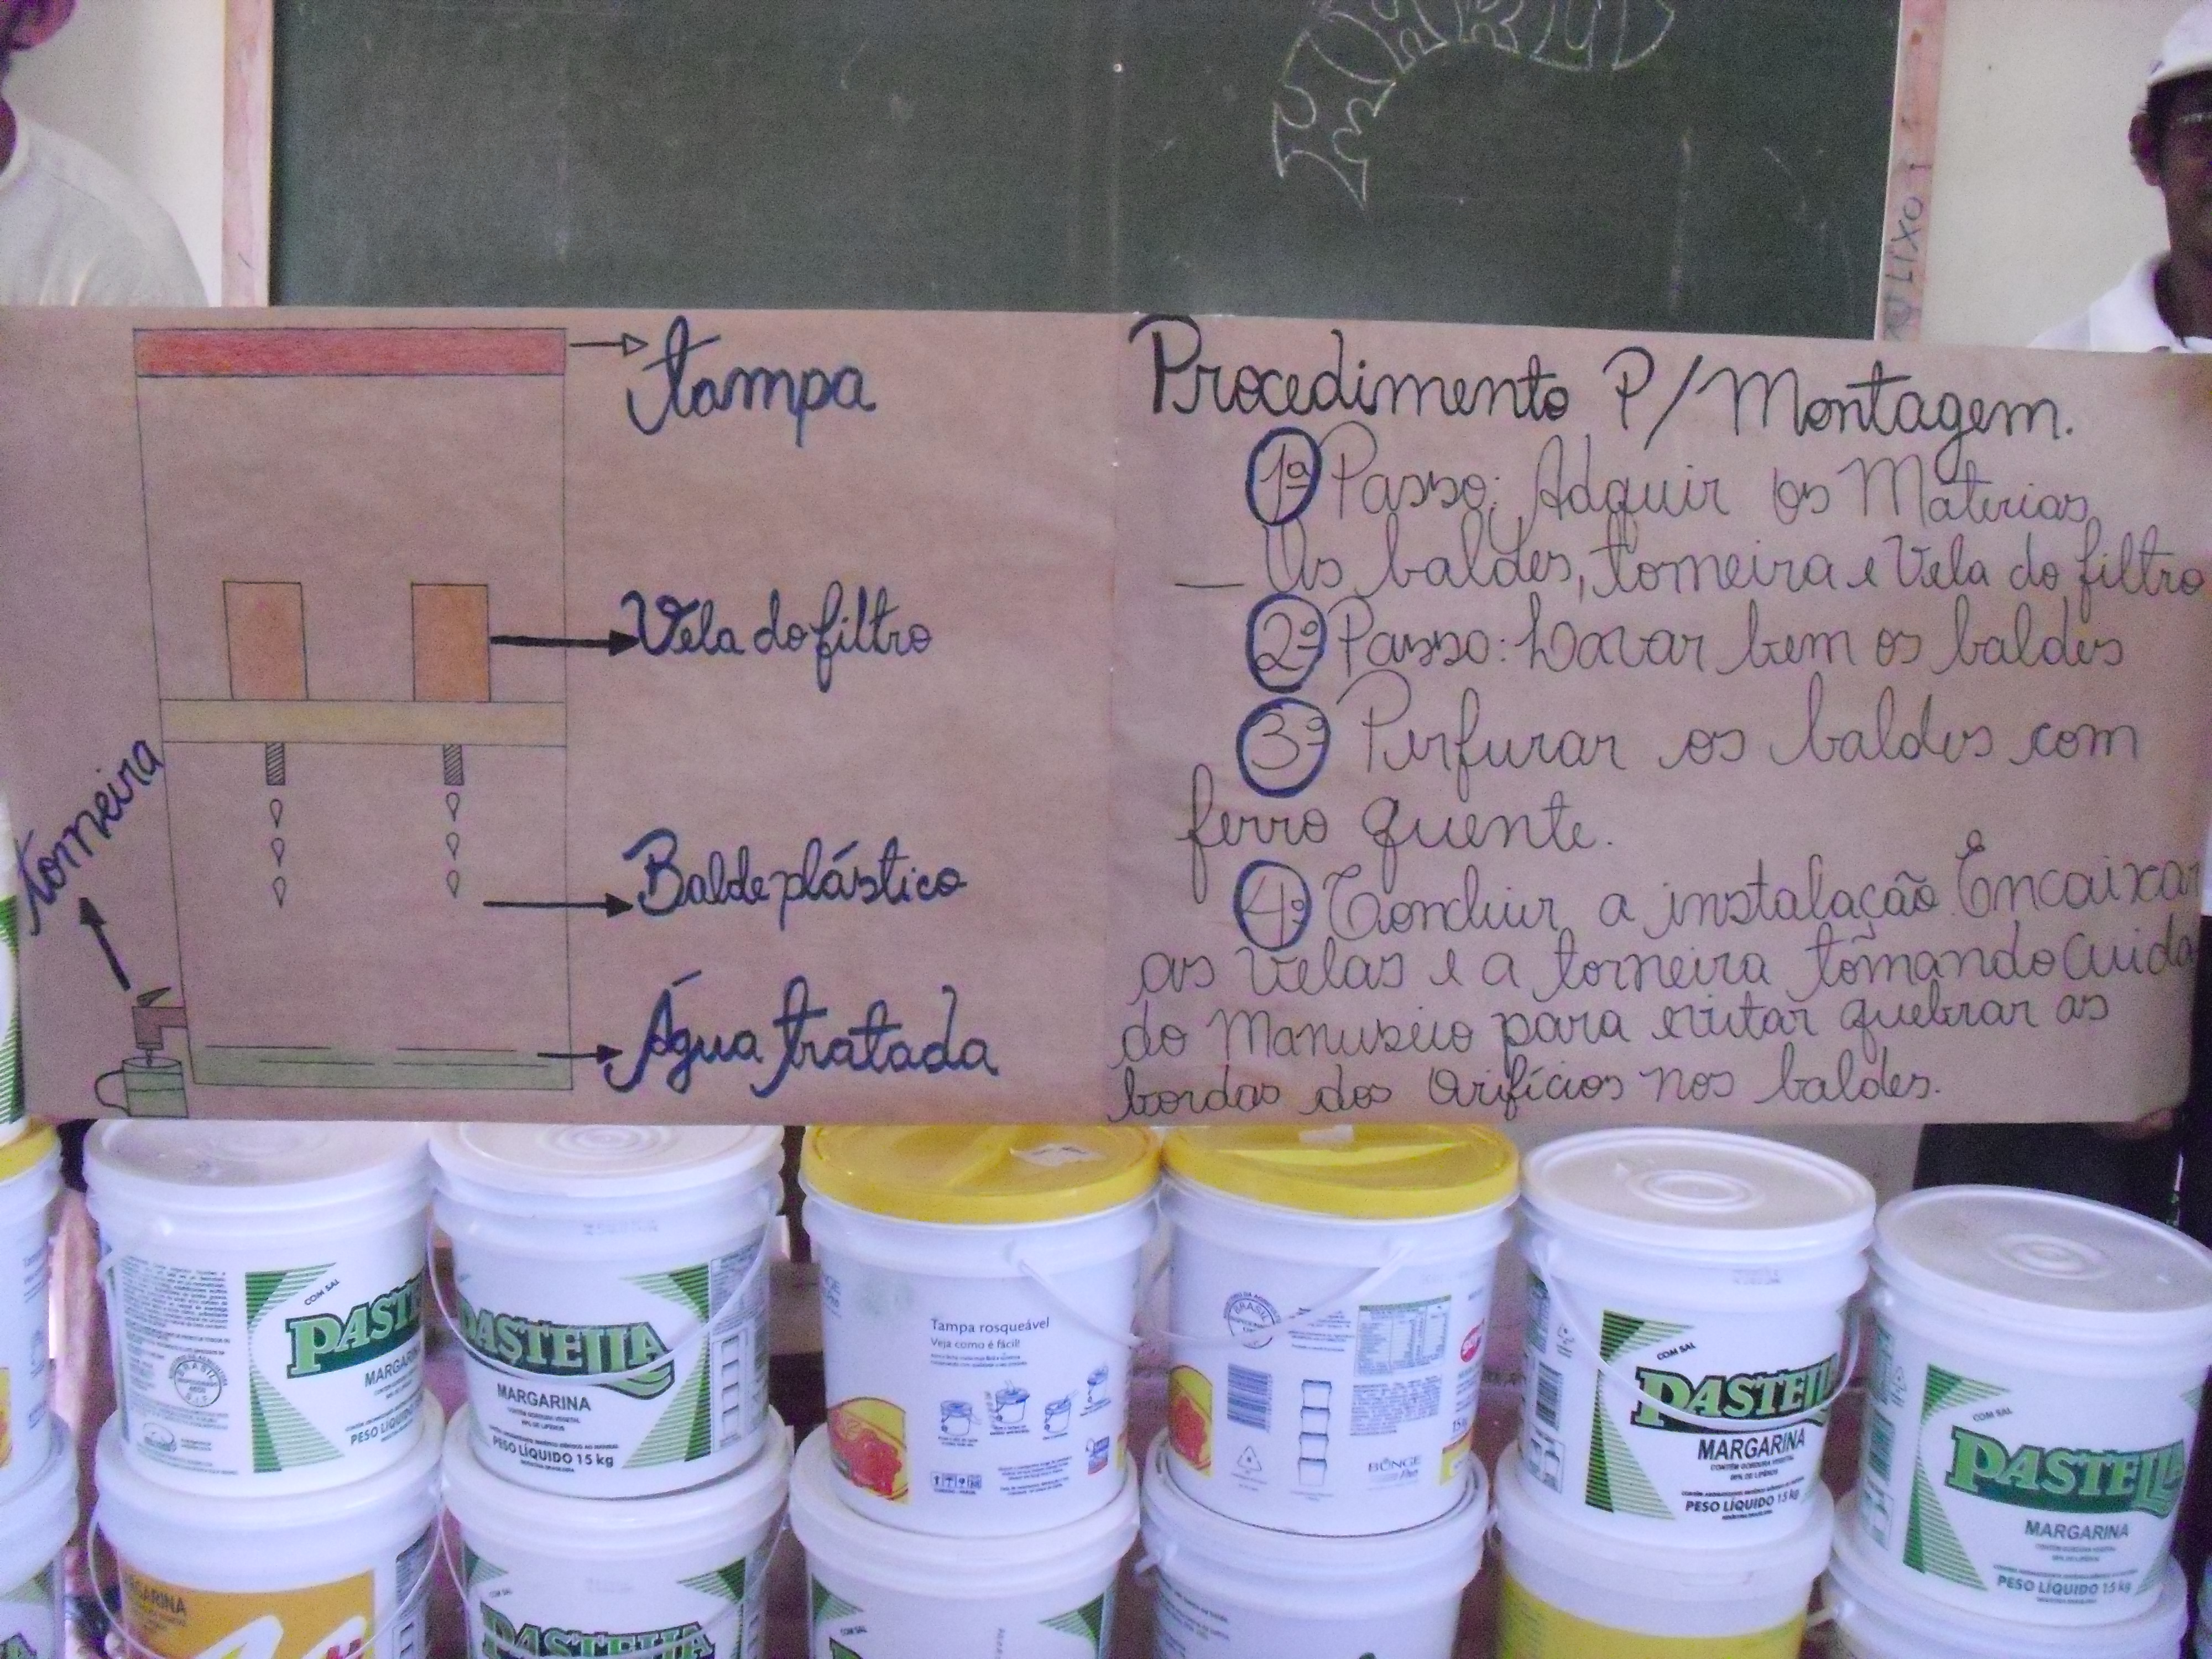 LIXO
tampa
Vela do filtro
torneira
Balde plástico
Água tratada
Procedimento P/ Montagem.
1º Passo: Adquir os Materias
— Os baldes, torneira e Vela do filtro
2º Passo: Lavar bem os baldes
3º Perfurar os baldes com
ferro quente.
4º Concluir a instalação. Encaixar
as velas e a torneira tomando cuida
do Manuseio para evitar quebrar as
bordas dos Orifícios nos baldes.
COM SAL
PASTE
MARGARINA
PESO LÍQUIDO
BRASIL
PASTELLA
MARGARINA
CONTÉM GORDURA VEGETAL
80% DE LIPÍDIOS
PESO LÍQUIDO 15 kg
Tampa rosqueável
Veja como é fácil!
BRASIL
BUNGE
Pro
COM SAL
PASTELL
MARGARINA
CONTÉM GORDURA VEGETAL
80% DE LIPÍDIOS
PESO LÍQUIDO 15 kg
COM SAL
PASTELL
MARGARINA
PESO LÍQUIDO 15 kg
MARGARINA
PASTELLA
COM SAL